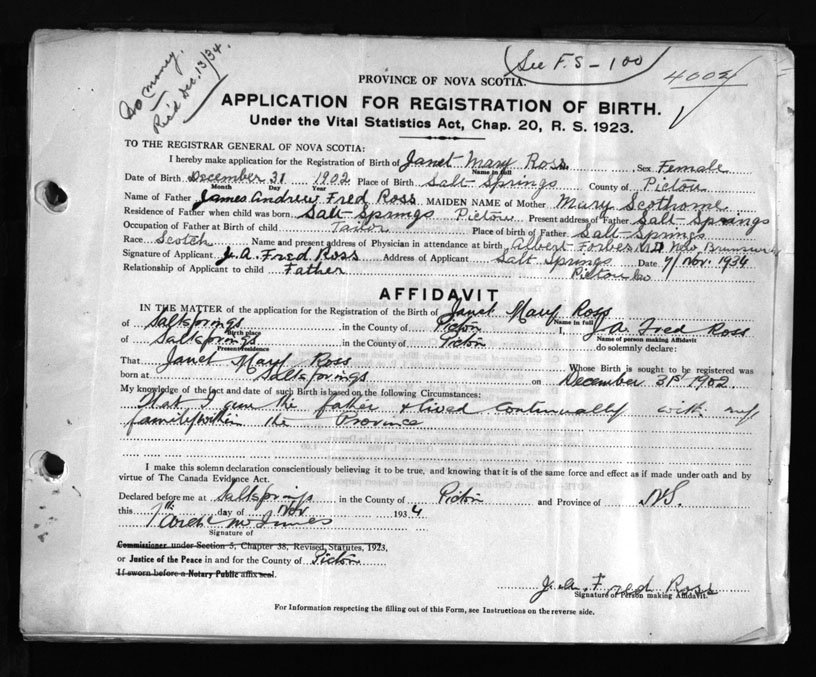 See F.S - 100
4002
No money.
Rec'd Dec. 13/34.
PROVINCE OF NOVA SCOTIA.
APPLICATION FOR REGISTRATION OF BIRTH.
Under the Vital Statistics Act, Chap. 20, R. S. 1923.
TO THE REGISTRAR GENERAL OF NOVA SCOTIA:
I hereby make application for the Registration of Birth of Janet Mary Ross Sex Female
Name in full
Date of Birth December 31 1902 Place of Birth Salt Springs County of Pictou
Month Day Year
Name of Father James Andrew Fred Ross MAIDEN NAME of Mother Mary Scothorne
Residence of Father when child was born Salt Springs Pictou Present address of Father Salt Springs
Occupation of Father at Birth of Child Tailor Place of birth of Father Salt Springs
Race Scotch Name and present address of Physician in attendance at birth Albert Forbes M.D New Brunswick
Signature of Applicant J. A. Fred Ross Address of Applicant Salt Springs Date 7/Nov. 1934
Relationship of Applicant to child Father Pictou Co
AFFIDAVIT
IN THE MATTER of the application for the Registration of the Birth of Janet Mary Ross
Name in full
of Saltsprings in the County of Pictou I, J.A. Fred Ross
Birth place Name of person making Affidavit
of Saltsprings in the County of Pictou do solemnly declare:
Present residence
That Janet Mary Ross Whose Birth is sought to be registered was
born at Saltsprings on December 31st 1902.
My knowledge of the fact and date of such Birth is based on the following Circumstances:
That I am the father & lived continually with my
family within the Province
I make this solemn declaration conscientiously believing it to be true, and knowing that it is of the same force and effect as if made under oath and by
virtue of The Canada Evidence Act.
Declared before me at Saltsprings in the County of Pictou and Province of N.S.
this 7th day of Nov 1934
McInnes
Signature of
Commissioner under Section 5, Chapter 38, Revised Statutes, 1923,
or Justice of the Peace in and for the County of Pictou
If sworn before a Notary Public affix seal.
J. A. Fred Ross
Signature of Person making Affidavit.
For Information respecting the filling out of this Form, see Instructions on the reverse side.